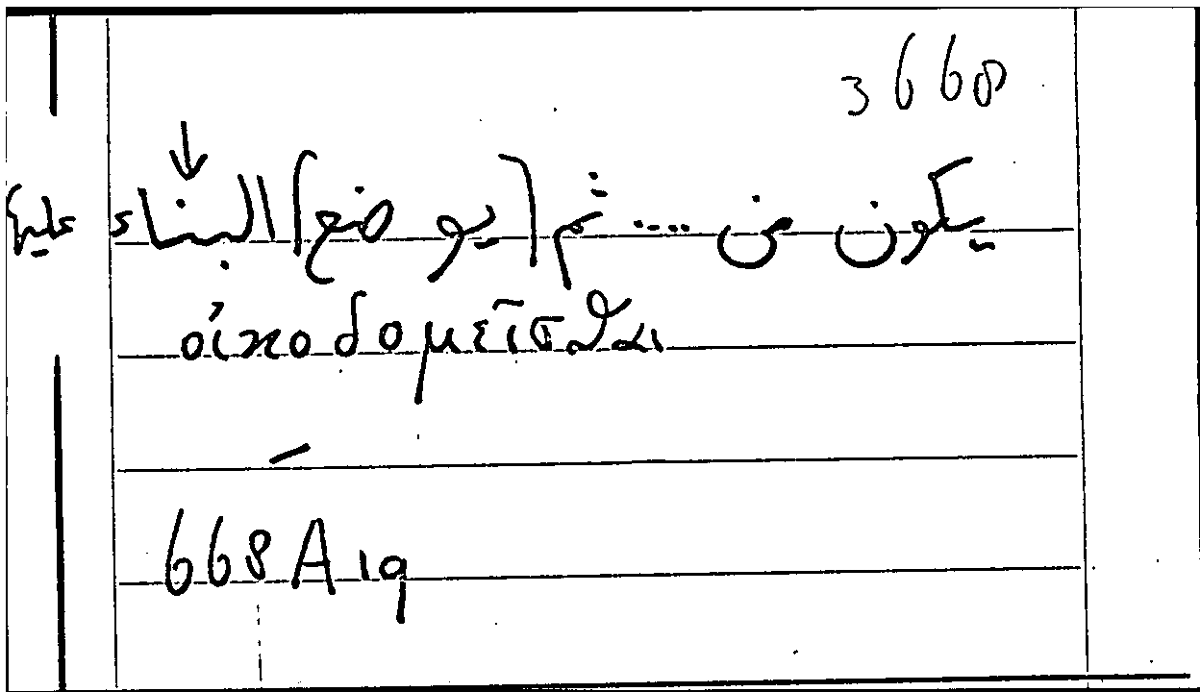 3668
يكون من .... ثم [يوضع] البناء عليها
οἰκοδομεῖσθαι
668A19